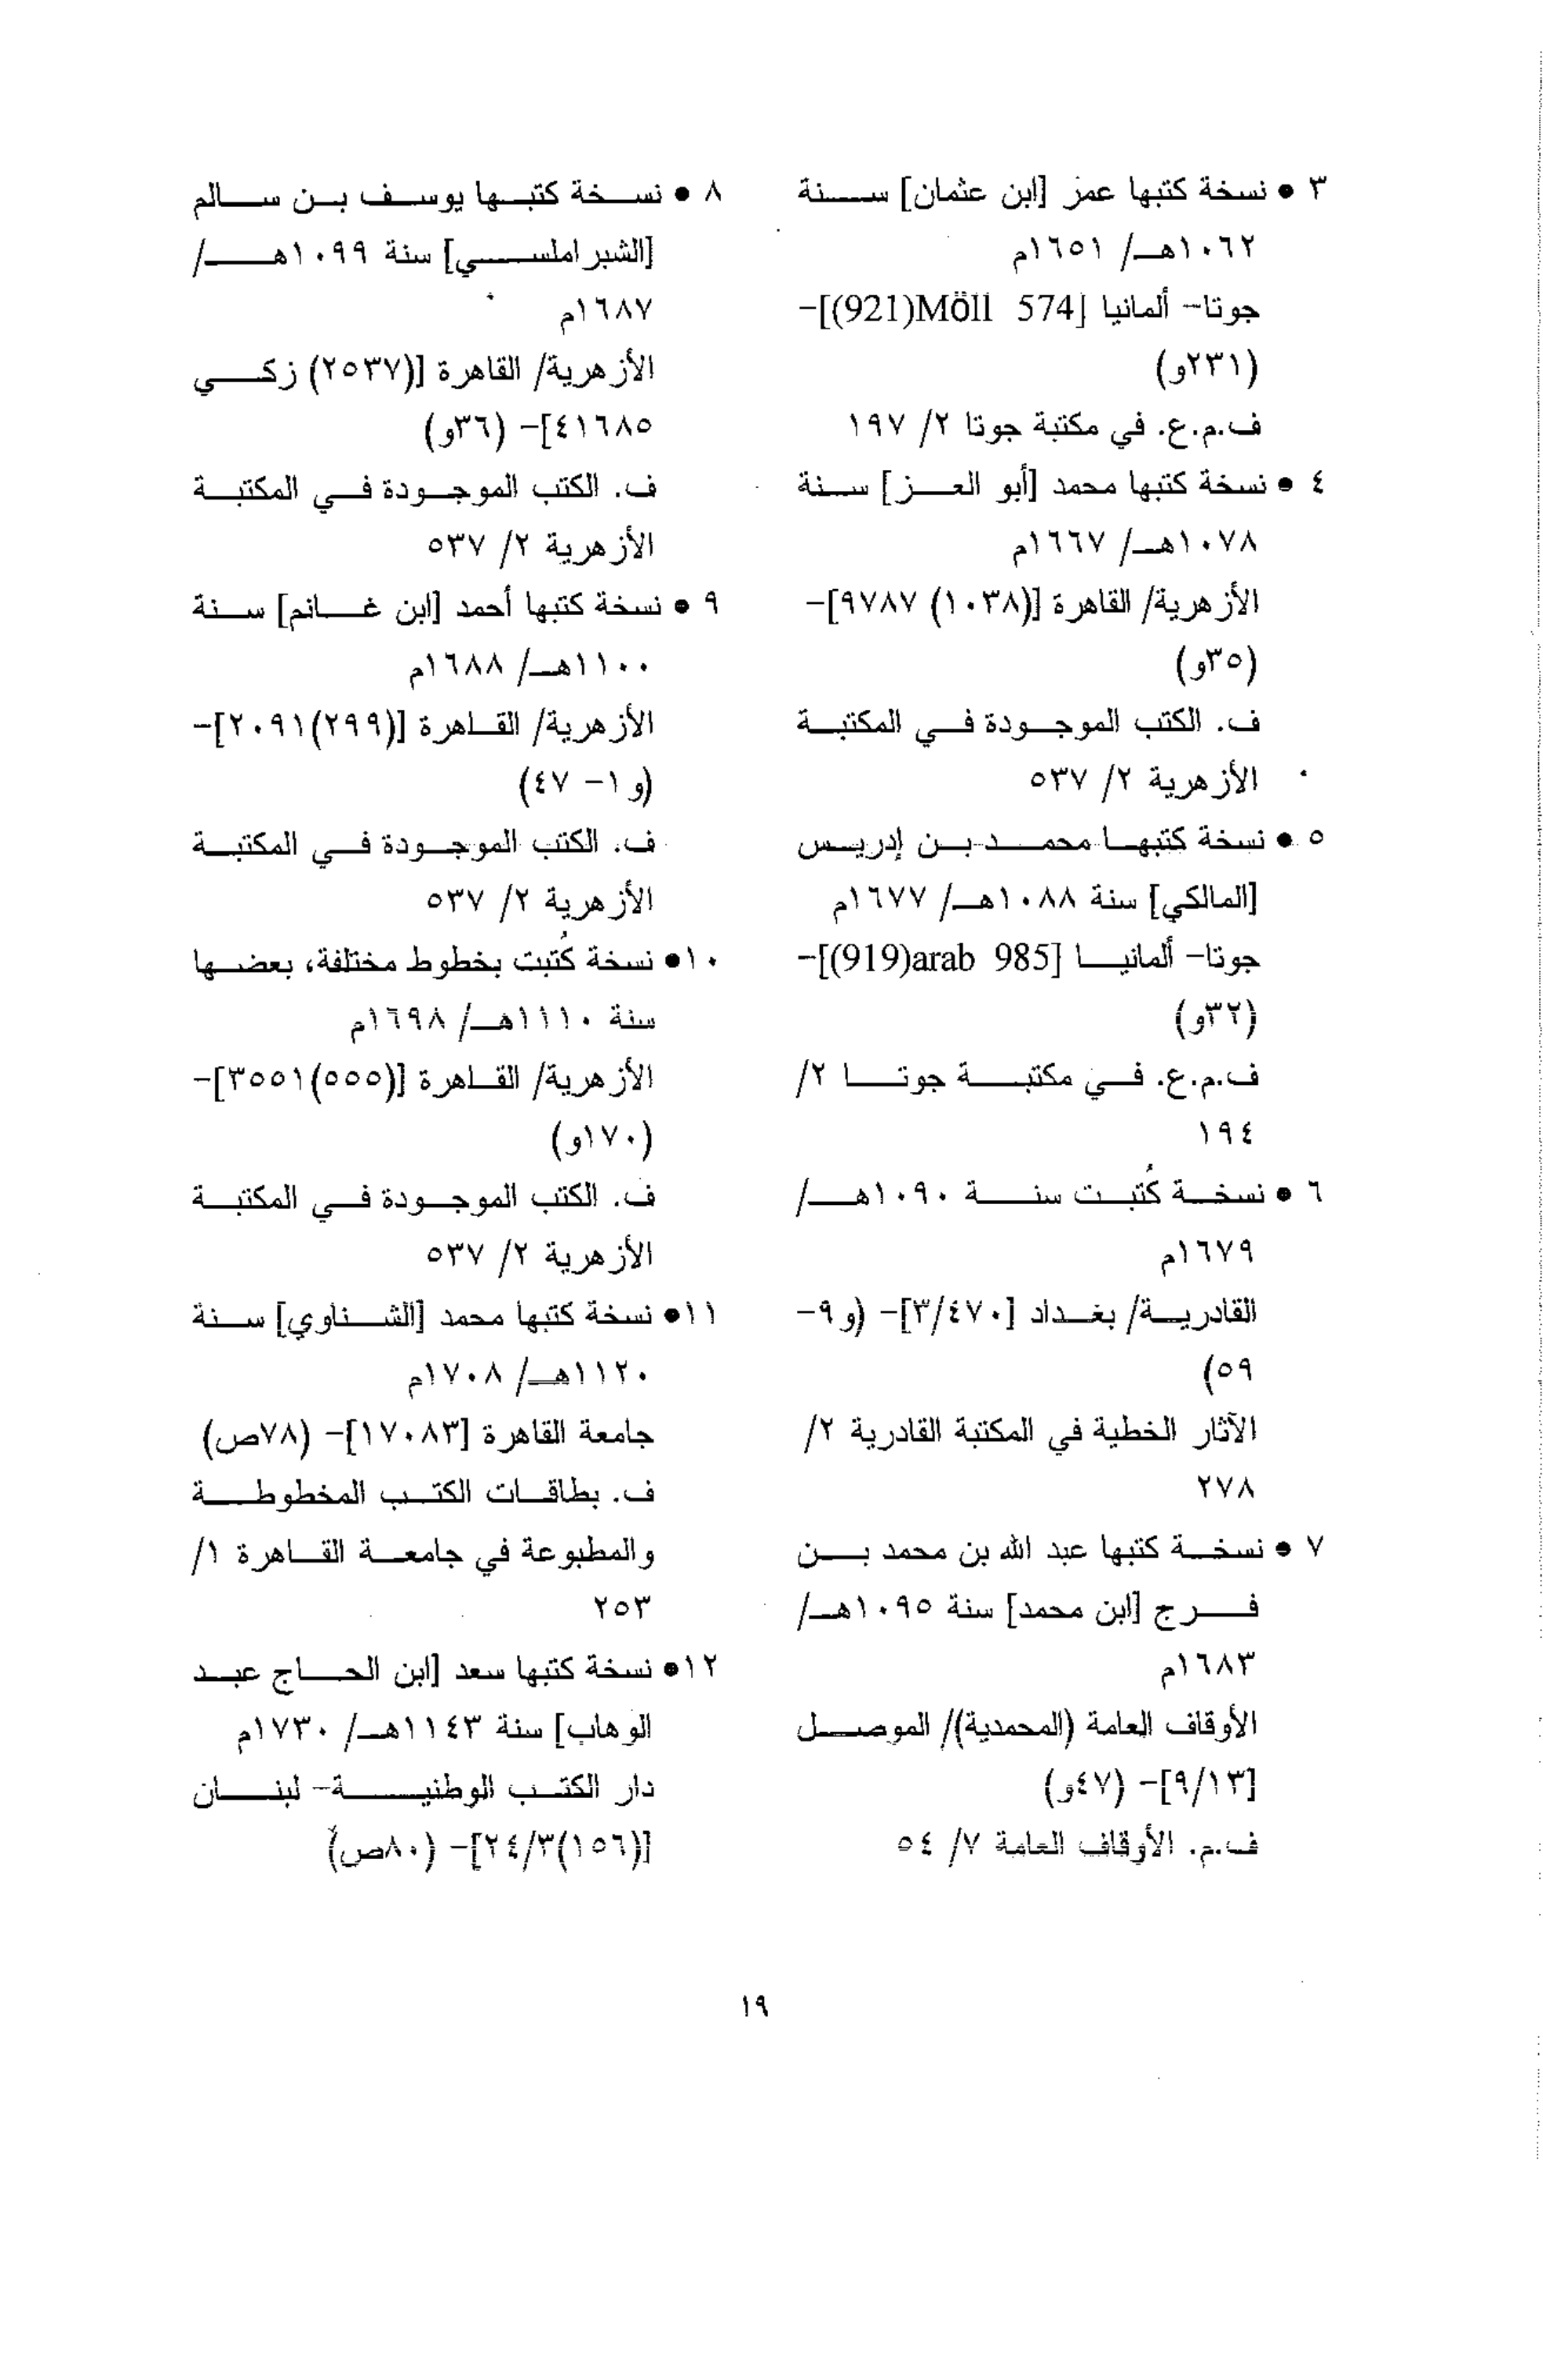 ٣ • نسخة كتبها عمر [ابن عثمان] سنة
١٠٦٢هـ/ ١٦٥١م
جوتا- ألمانيا [574 Möll(921)]-
(٢٣١و)
ف.م.ع. في مكتبة جوتا ٢/ ١٩٧
٤ • نسخة كتبها محمد [أبو العز] سنة
١٠٧٨هـ/ ١٦٦٧م
الأزهرية/ القاهرة [(١٠٣٨) ٩٧٨٧]-
(٣٥و)
ف. الكتب الموجودة في المكتبة
الأزهرية ٢/ ٥٣٧
٥ • نسخة كتبها محمد بن إدريس
[المالكي] سنة ١٠٨٨هـ/ ١٦٧٧م
جوتا- ألمانيا [985 arab(919)]-
(٣٢و)
ف.م.ع. في مكتبة جوتا ٢/
١٩٤
٦ • نسخة كُتبت سنة ١٠٩٠هـ/
١٦٧٩م
القادرية/ بغداد [٣/٤٧٠]- (و ٩-
٥٩)
الآثار الخطية في المكتبة القادرية ٢/
٢٧٨
٧ • نسخة كتبها عبد الله بن محمد بن
فرج [ابن محمد] سنة ١٠٩٥هـ/
١٦٨٣م
الأوقاف العامة (المحمدية)/ الموصل
[٩/١٣]- (٤٧و)
ف.م. الأوقاف العامة ٧/ ٥٤
٨ • نسخة كتبها يوسف بن سالم
[الشبراملسي] سنة ١٠٩٩هـ/
١٦٨٧م
الأزهرية/ القاهرة [(٢٥٣٧) زكي
٤١٦٨٥]- (٣٦و)
ف. الكتب الموجودة في المكتبة
الأزهرية ٢/ ٥٣٧
٩ • نسخة كتبها أحمد [ابن غانم] سنة
١١٠٠هـ/ ١٦٨٨م
الأزهرية/ القاهرة [(٢٩٩)٢٠٩١]-
(و ١- ٤٧)
ف. الكتب الموجودة في المكتبة
الأزهرية ٢/ ٥٣٧
١٠• نسخة كُتبت بخطوط مختلفة، بعضها
سنة ١١١٠هـ/ ١٦٩٨م
الأزهرية/ القاهرة [(٥٥٥)٣٥٥١]-
(١٧٠و)
ف. الكتب الموجودة في المكتبة
الأزهرية ٢/ ٥٣٧
١١• نسخة كتبها محمد [الشناوي] سنة
١١٢٠هـ/ ١٧٠٨م
جامعة القاهرة [١٧٠٨٣]- (٧٨ص)
ف. بطاقات الكتب المخطوطة
والمطبوعة في جامعة القاهرة ١/
٢٥٣
١٢• نسخة كتبها سعد [ابن الحاج عبد
الوهاب] سنة ١١٤٣هـ/ ١٧٣٠م
دار الكتب الوطنية- لبنان
[(١٥٦)٢٤/٣]- (٨٠ص)
١٩